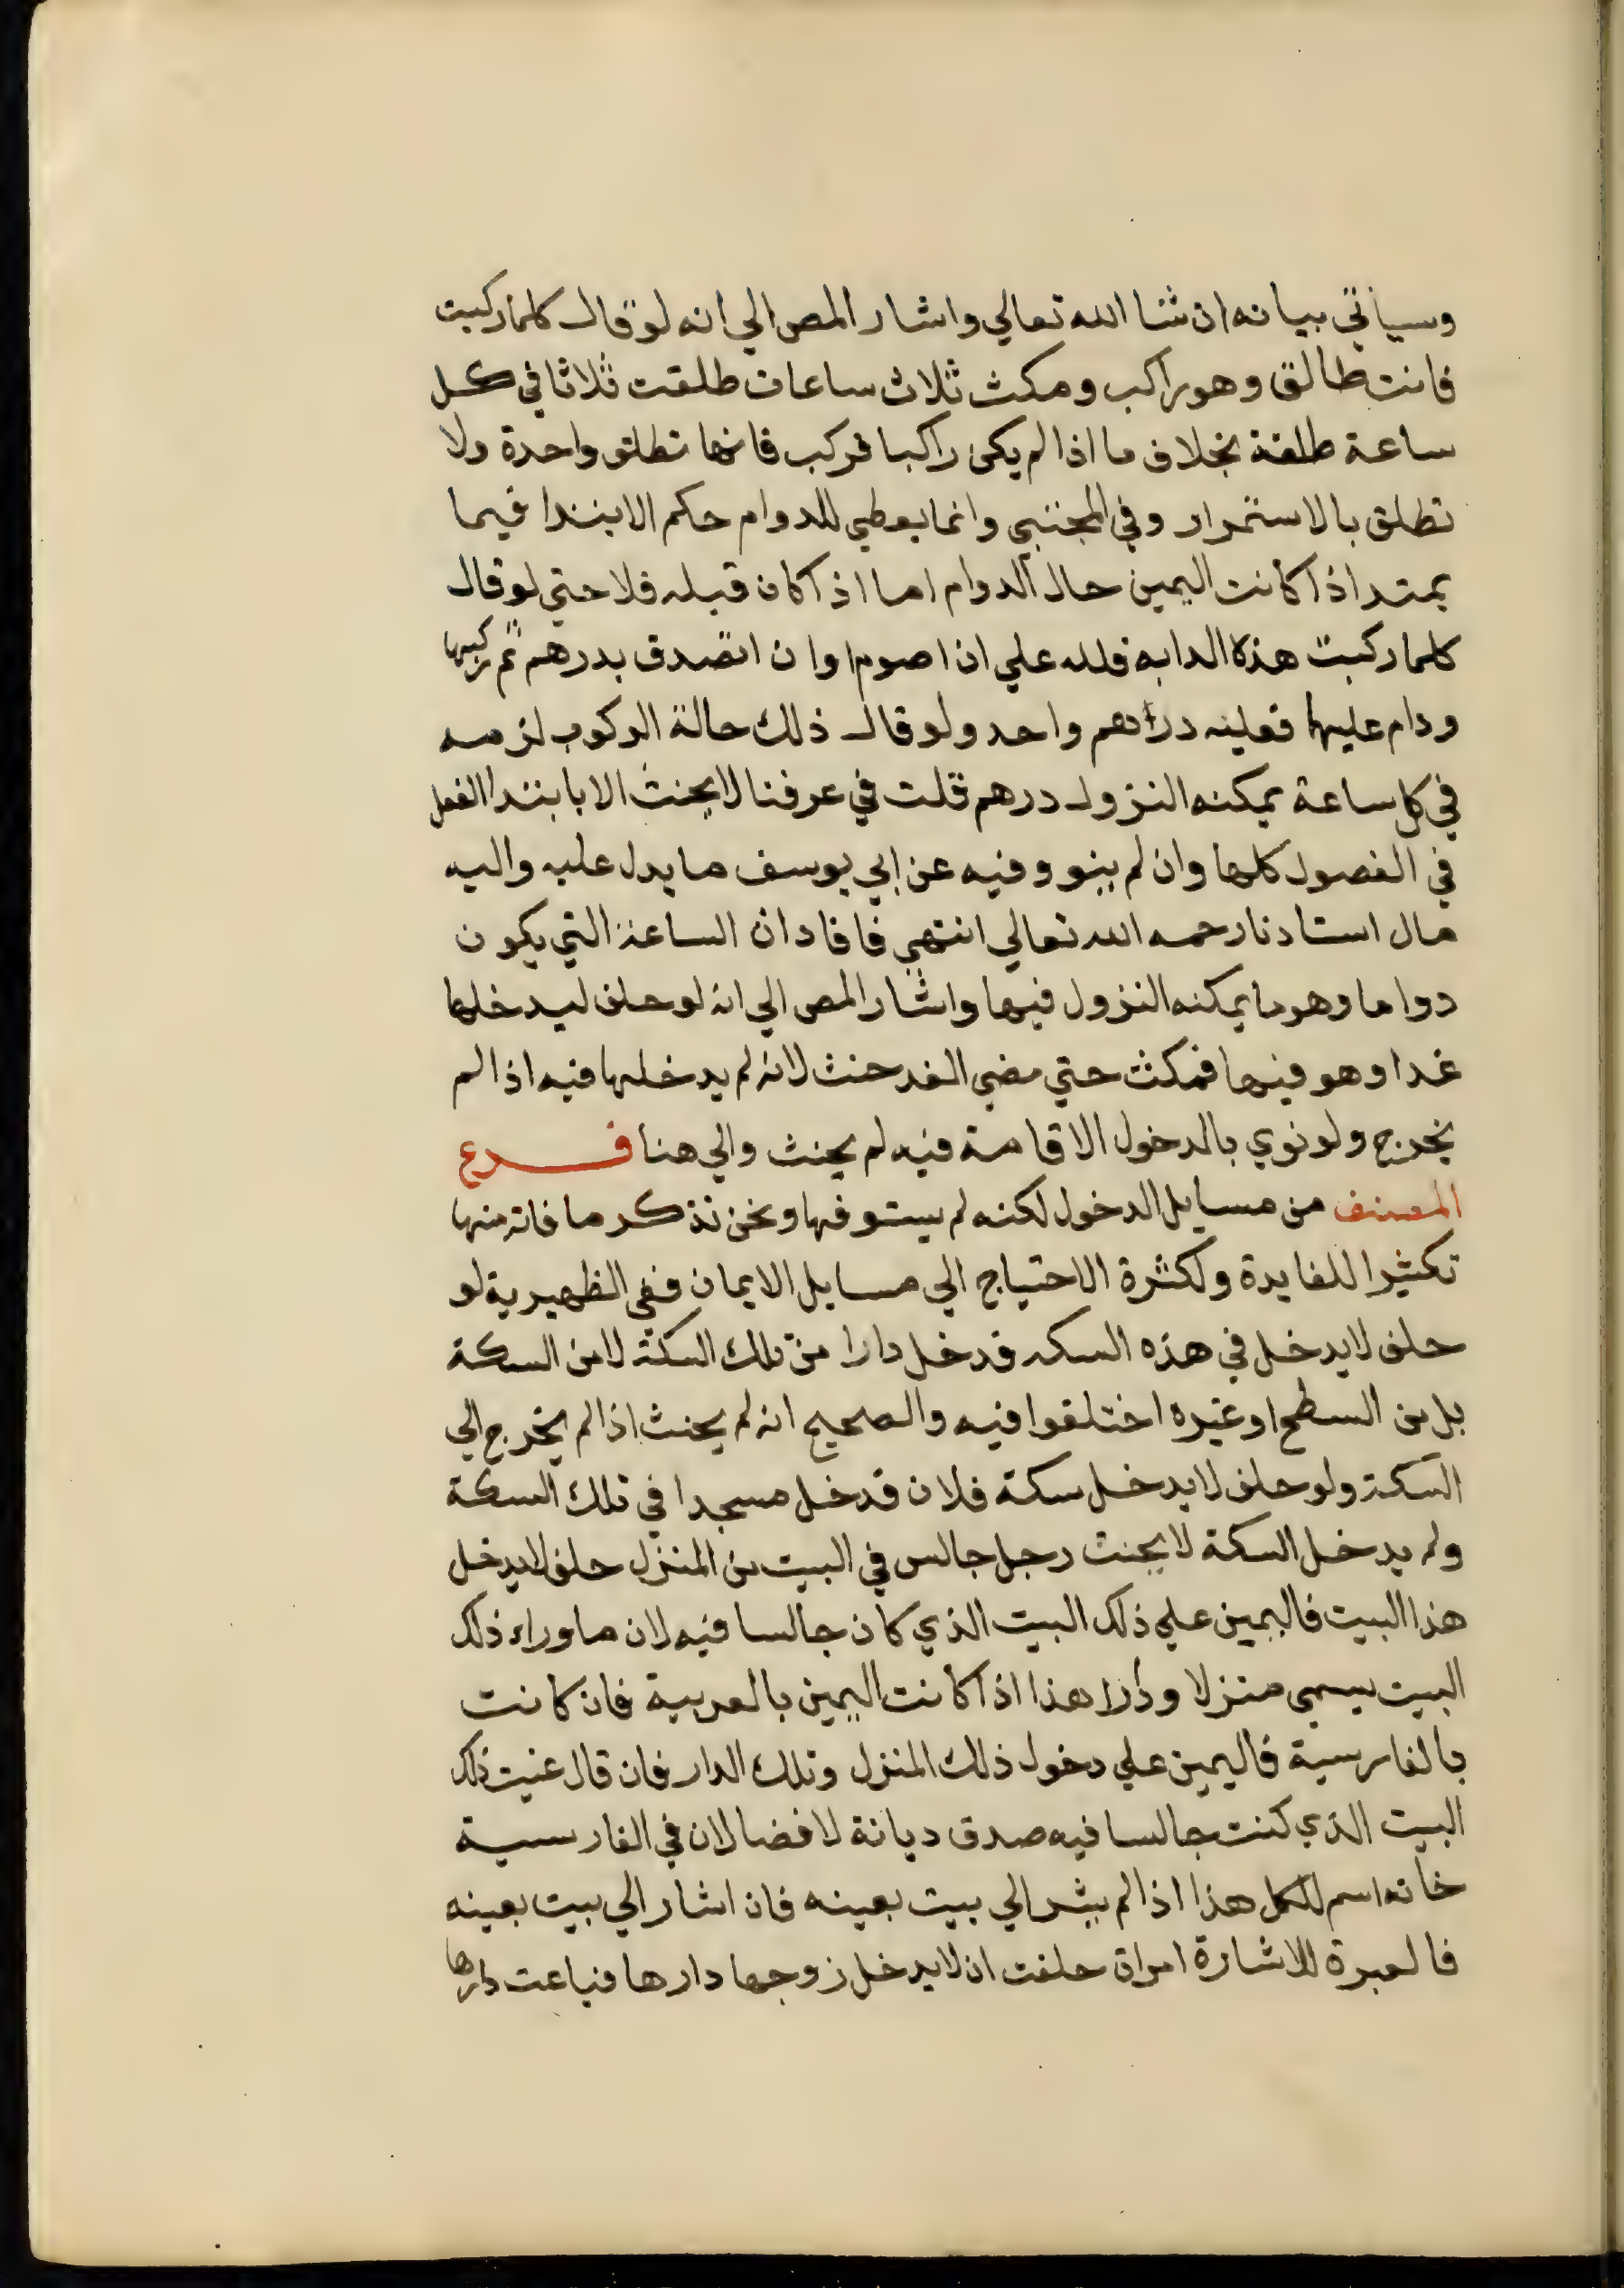 وسياتي بيانه ان شا الله تعالي واشار المص الي انه لو قال كلما ركبت
فانت طالق وهو راكب ومكث ثلاث ساعات طلقت ثلاثا في كل
ساعة طلقة بخلاف ما اذا لم يكن راكبا فركب فانها تطلق واحدة ولا
تطلق بالاستمرار وفي المجتبي وانما يعطي للدوام حكم الابتدا فيما
يمتد اذا كانت اليمين حال الدوام اما اذا كان قبله فلا حتي لو قال
كلما ركبت هذه الدابه فلله علي ان اصوم او ان اتصدق بدرهم ثم ركبها
ودام عليها فعليه درهم واحد ولو قال ذلك حالة الركوب لزمه
في كل ساعة يمكنه النزول درهم قلت في عرفنا لا يحنث الا بابتدا الفعل
في الفصول كلها وان لم ينو وفيه عن ابي يوسف ما يدل عليه واليه
مال استادنا رحمه الله تعالي انتهي فافاد ان الساعة التي يكون
دواما وهو ما يمكنه النزول فيها واشار المص الي انه لو حلف ليدخلها
غدا وهو فيها فمكث حتي مضي الغد حنث لانه لم يدخلها فيه اذا لم
يخرج ولو نوي بالدخول الاقامة فيه لم يحنث والي هنا فرع
المصنف من مسايل الدخول لكنه لم يستوفها ونحن نذكر ما فاته منها
تكثيرا للفايدة ولكثرة الاحتياج الي مسايل الايمان ففي الظهيرية لو
حلف لا يدخل في هذه السكه فدخل دارا من تلك السكة لا من السكة
بل من السطح او غيره اختلفوا فيه والصحيح انه لم يحنث اذا لم يخرج الي
السكة ولو حلف لا يدخل سكة فلان فدخل مسجدا في تلك السكة
ولم يدخل السكة لا يحنث رجل جالس في البيت من المنزل حلف لا يدخل
هذا البيت فاليمين علي ذلك البيت الذي كان جالسا فيه لان ما وراء ذلك
البيت يسمي منزلا ودارا هذا اذا كانت اليمين بالعربية فان كانت
بالفارسية فاليمين علي دخول ذلك المنزل وتلك الدار فان قال عنيت ذلك
البيت الذي كنت جالسا فيه صدق ديانة لا قضا لان في الفارسية
خانه اسم للكل هذا اذا لم يشر الي بيت بعينه فان اشار الي بيت بعينه
فالعبرة للاشارة امراة حلفت ان لا يدخل زوجها دارها فباعت دارها